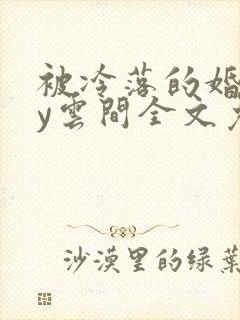 被冷落的婚
y雲間全文
沙漠里的绿葉